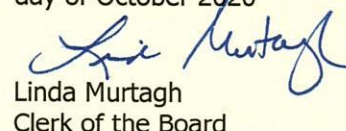 day of October 2020
Linda Murtagh
Linda Murtagh
Clerk of the Board